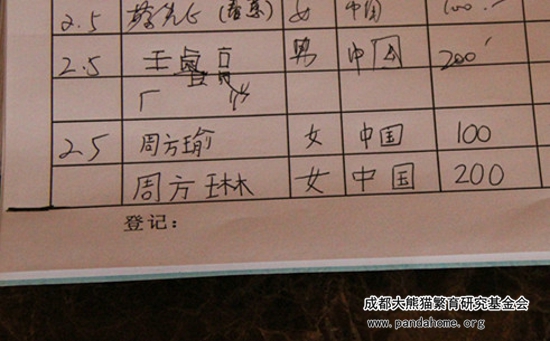 2.5 女 中国 100
2.5 王 男 中国 200
2.5 周方瑜 女 中国 100
周方琳 女 中国 200
登记：
成都大熊猫繁育研究基金会
www.pandahome.org